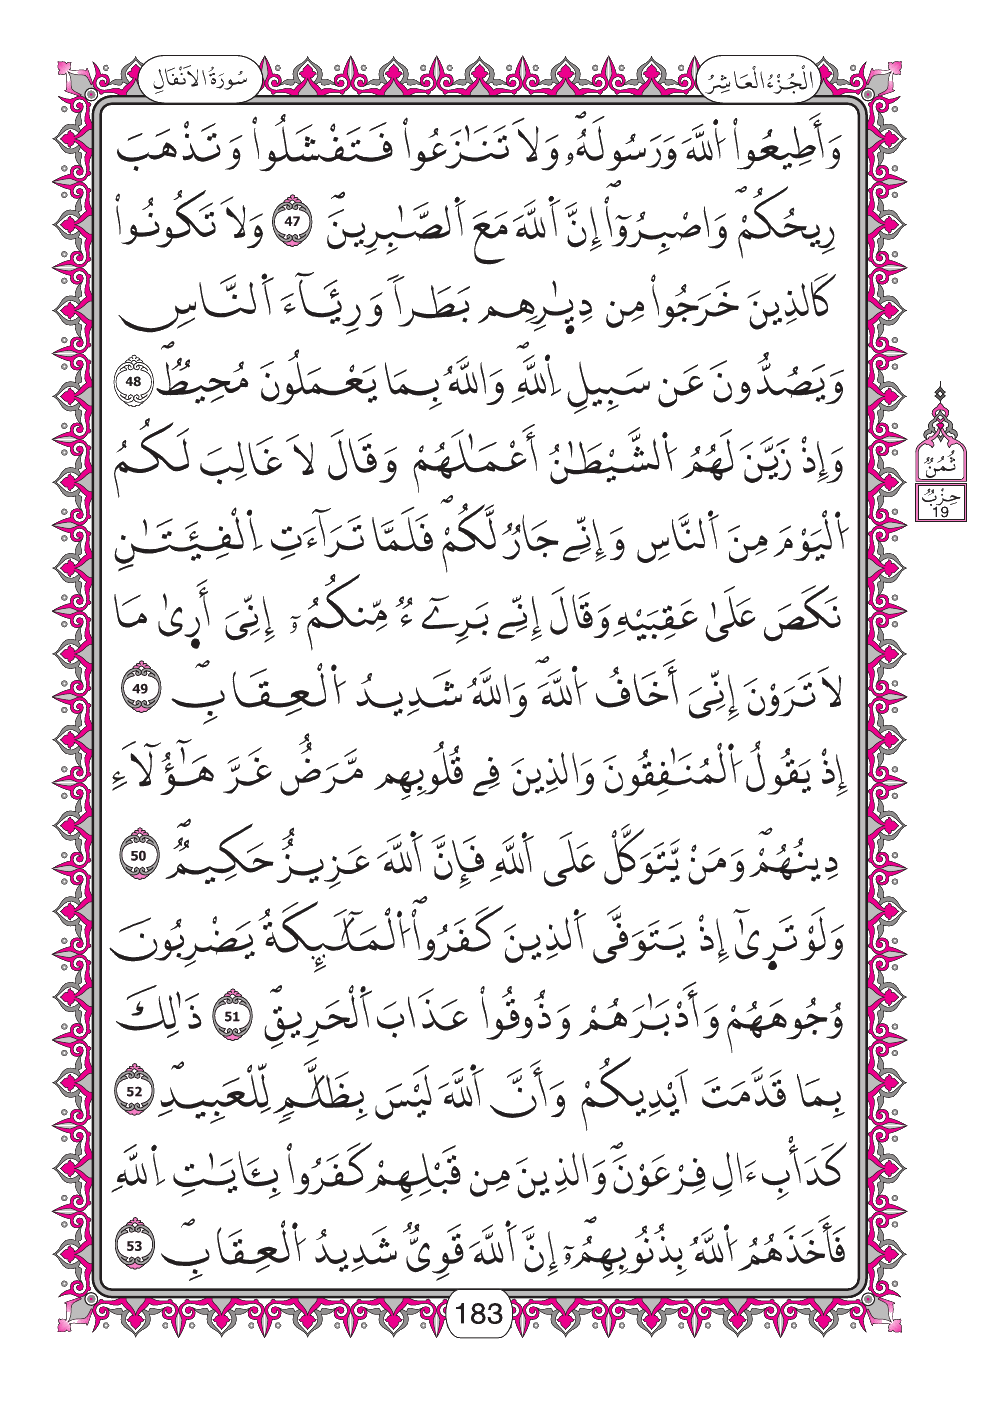 سُورَةُ الاَنْفَالِ
الْجُزْءُ الْعَاشِرُ
وَأَطِيعُواْ اُ۬للَّهَ وَرَسُولَهُۥۖ وَلَا تَنَٰزَعُواْ فَتَفْشَلُواْ وَتَذْهَبَ
رِيحُكُمْۖ وَاصْبِرُوٓاْۖ إِنَّ اَ۬للَّهَ مَعَ اَ۬لصَّٰبِرِينَۖ 47 وَلَا تَكُونُواْ
كَالذِينَ خَرَجُواْ مِن دِيٰ۪رِهِم بَطَراٗ وَرِئَآءَ اَ۬لنَّاسِ
وَيَصُدُّونَ عَن سَبِيلِ اِ۬للَّهِۖ وَاللَّهُ بِمَا يَعْمَلُونَ مُحِيطٞۖ 48
وَإِذْ زَيَّنَ لَهُمُ اُ۬لشَّيْطَٰنُ أَعْمَٰلَهُمْ وَقَالَ لَا غَالِبَ لَكُمُ
اُ۬لْيَوْمَ مِنَ اَ۬لنَّاسِ وَإِنِّے جَارٞ لَّكُمْۖ فَلَمَّا تَرَآءَتِ اِ۬لْفِئَتَٰنِ
نَكَصَ عَلَىٰ عَقِبَيْهِ وَقَالَ إِنِّے بَرِےٓءٞ مِّنكُمُۥٓ إِنِّيَ أَر۪ىٰ مَا
لَا تَرَوْنَ إِنِّيَ أَخَافُ اُ۬للَّهَۖ وَاللَّهُ شَدِيدُ اُ۬لْعِقَابِۖ 49
إِذْ يَقُولُ اُ۬لْمُنَٰفِقُونَ وَالذِينَ فِے قُلُوبِهِم مَّرَضٌ غَرَّ هَٰٓؤُلَآءِ
دِينُهُمْۖ وَمَنْ يَّتَوَكَّلْ عَلَى اَ۬للَّهِ فَإِنَّ اَ۬للَّهَ عَزِيزٌ حَكِيمٞۖ 50
وَلَوْ تَر۪ىٰٓ إِذْ يَتَوَفَّى اَ۬لذِينَ كَفَرُواْۖ اُ۬لْمَلَٰٓئِكَةُ يَضْرِبُونَ
وُجُوهَهُمْ وَأَدْبَٰرَهُمْ وَذُوقُواْ عَذَابَ اَ۬لْحَرِيقِۖ 51 ذَٰلِكَ
بِمَا قَدَّمَتَ اَيْدِيكُمْ وَأَنَّ اَ۬للَّهَ لَيْسَ بِظَلَّٰمٖ لِّلْعَبِيدِۖ 52
كَدَأْبِ ءَالِ فِرْعَوْنَۖ وَالذِينَ مِن قَبْلِهِمْ كَفَرُواْ بِـَٔايَٰتِ اِ۬للَّهِ
فَأَخَذَهُمُ اُ۬للَّهُ بِذُنُوبِهِمُۥٓۖ إِنَّ اَ۬للَّهَ قَوِيّٞ شَدِيدُ اُ۬لْعِقَابِۖ 53
ثُمُنٌ
حِزْبٌ
19
183